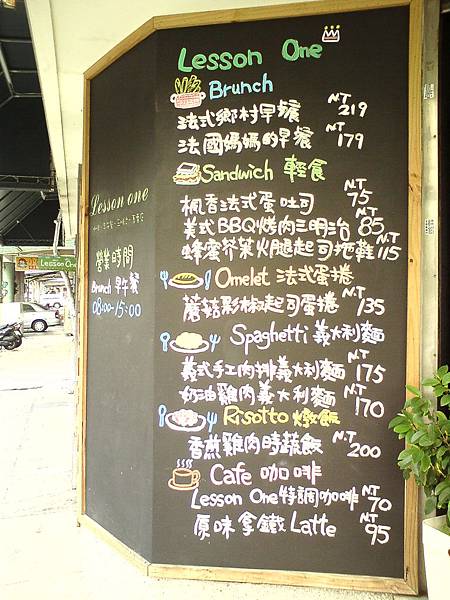 Lesson One
Brunch
法式鄉村早餐 NT 219
法國媽媽的早餐 NT 179
Sandwich 輕食
楓香法式蛋吐司 NT 75
美式BBQ烤肉三明治 NT 85
蜂蜜芥茉火腿起司拖鞋 NT 115
Omelet 法式蛋捲
蘑菇彩椒起司蛋捲 NT 135
Spaghetti 義大利麵
義式手工肉排義大利麵 NT 175
奶油雞肉義大利麵 NT 170
Risotto 燉飯
香煎雞肉時蔬飯 NT 200
Cafe 咖啡
Lesson One特調咖啡 NT 70
原味拿鐵 Latte NT 95
Lesson one
營業時間
Brunch 早午餐
08:00-15:00
Lesson One